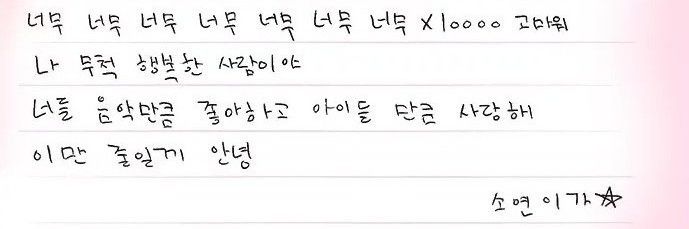 너무 너무 너무 너무 너무 너무 너무 X10000 고마워
나 무척 행복한 사람이야
너를 음악만큼 좋아하고 아이들 만큼 사랑해
이만 줄일게 안녕
소연이가☆